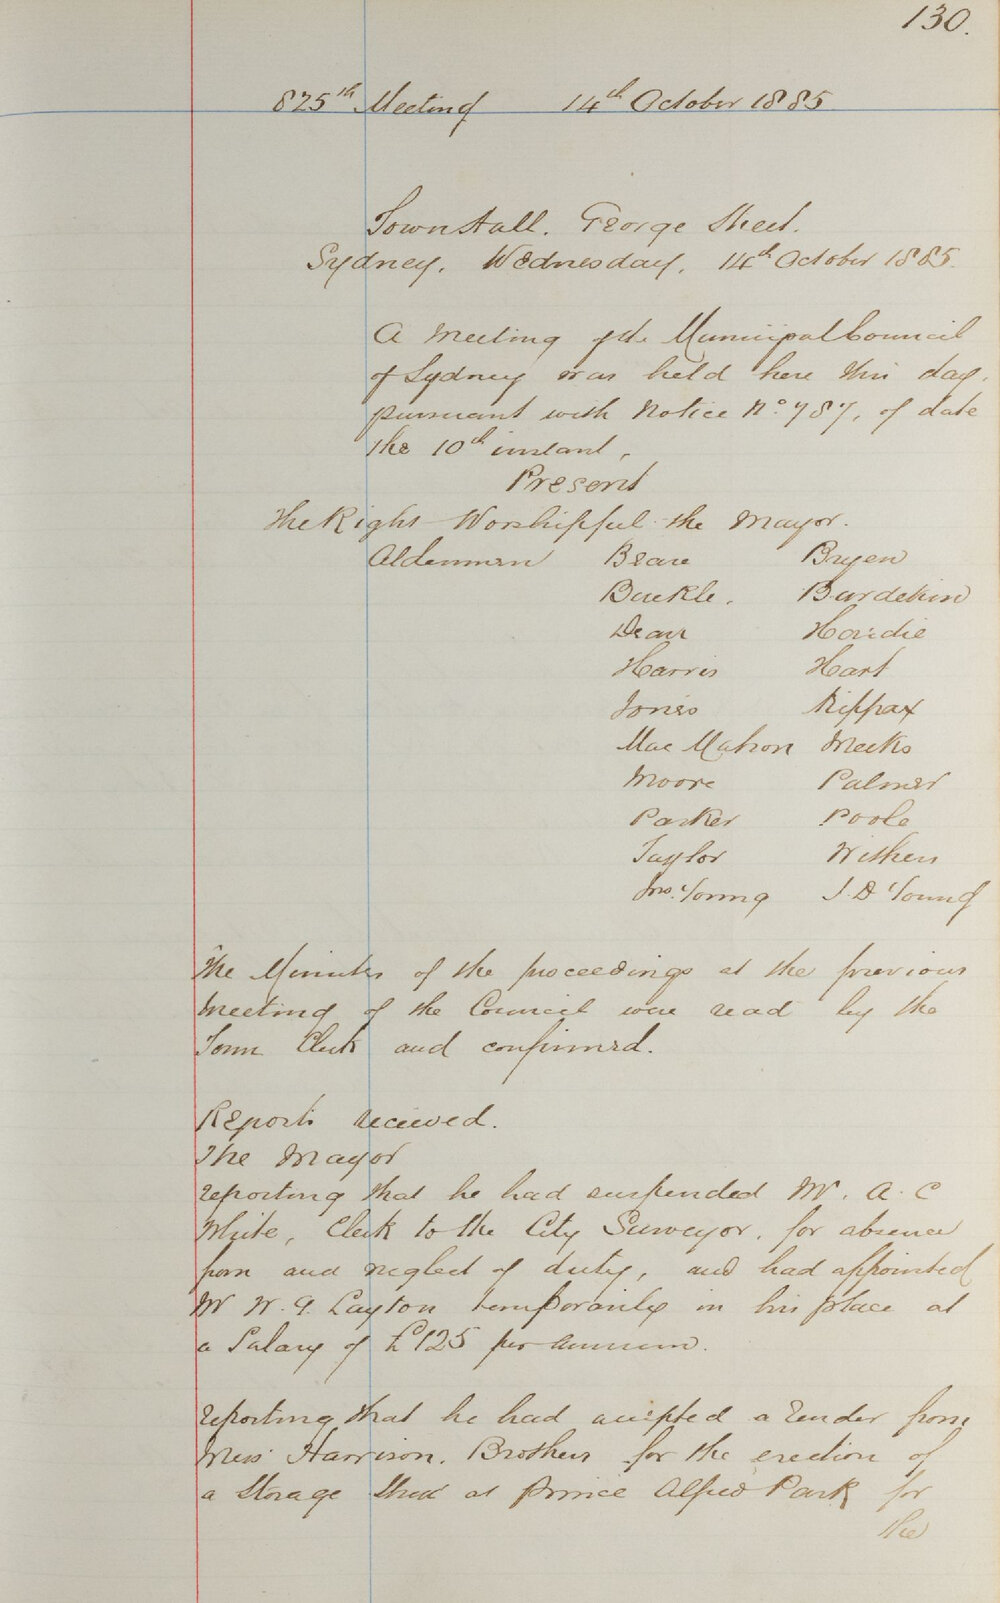 130.
825th Meeting 14th October 1885
Town Hall. George Street.
Sydney, Wednesday, 14th October 1885.
A Meeting of the Municipal Council
of Sydney was held here this day,
pursuant with Notice No. 787, of date
the 10th instant,
Present
The Right Worshipful the Mayor.
Aldermen Beare Bryen
Buckle. Burdekin
Dean Hardie
Harris Hart
Jones Kippax
Mac Mahon Meeks
Moore Palmer
Parker Poole
Taylor Withers
Jno. Young J. D Young
The Minutes of the proceedings at the previous
Meeting of the Council were read by the
Town Clerk and confirmed.
Reports recieved.
The Mayor
reporting that he had suspended Mr. A. C
White, Clerk to the City Surveyor, for absence
from and neglect of duty, and had appointed
Mr W. G. Layton temporarily in his place at
a Salary of £125 per annum.
reporting that he had accepted a Tender from
Mess Harrison. Brothers for the erection of
a Storage Shed at Prince Alfred Park for
the